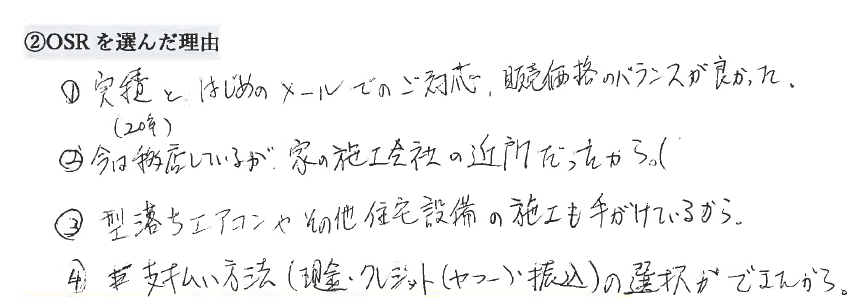 ②OSRを選んだ理由
① 実績と、はじめのメールでのご対応、販売価格のバランスが良かった。
(20年)
② 今は移店しているが、家の施工会社の近所だったから。(
③ 型落ちエアコンやその他住宅設備の施工も手がけているから。
④ 支払い方法(現金・クレジット(ヤフー)・振込)の選択ができたから。